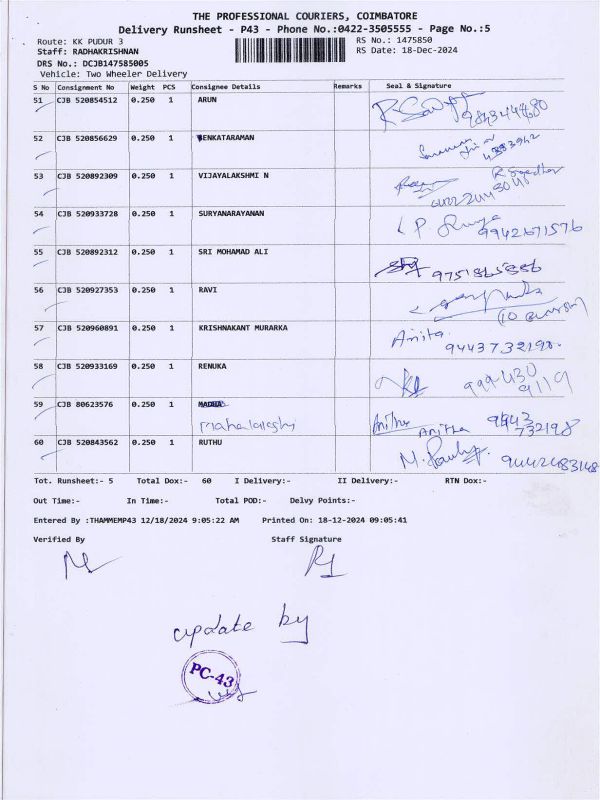 THE PROFESSIONAL COURIERS, COIMBATORE
Delivery Runsheet - P43 - Phone No.:0422-3505555 - Page No.:5
Route: KK PUDUR 3 RS No.: 1475850
Staff: RADHAKRISHNAN RS Date: 18-Dec-2024
DRS No.: DCJB147585005
Vehicle: Two Wheeler Delivery
S No Consignment No Weight PCS Consignee Details Remarks Seal & Signature
51 CJB 520854512 0.250 1 ARUN
52 CJB 520856629 0.250 1 VENKATARAMAN
53 CJB 520892309 0.250 1 VIJAYALAKSHMI N
54 CJB 520933728 0.250 1 SURYANARAYANAN 9942671576
55 CJB 520892312 0.250 1 SRI MOHAMAD ALI
56 CJB 520927353 0.250 1 RAVI
57 CJB 520960891 0.250 1 KRISHNAKANT MURARKA Anita
9443732198
58 CJB 520933169 0.250 1 RENUKA
59 CJB 80623576 0.250 1 Anitha
60 CJB 520843562 0.250 1 RUTHU
Tot. Runsheet:- 5 Total Dox:- 60 I Delivery:- II Delivery:- RTN Dox:-
Out Time:- In Time:- Total POD:- Delvy Points:-
Entered By :THAMMEMP43 12/18/2024 9:05:22 AM Printed On: 18-12-2024 09:05:41
Verified By Staff Signature
update by
PC-43